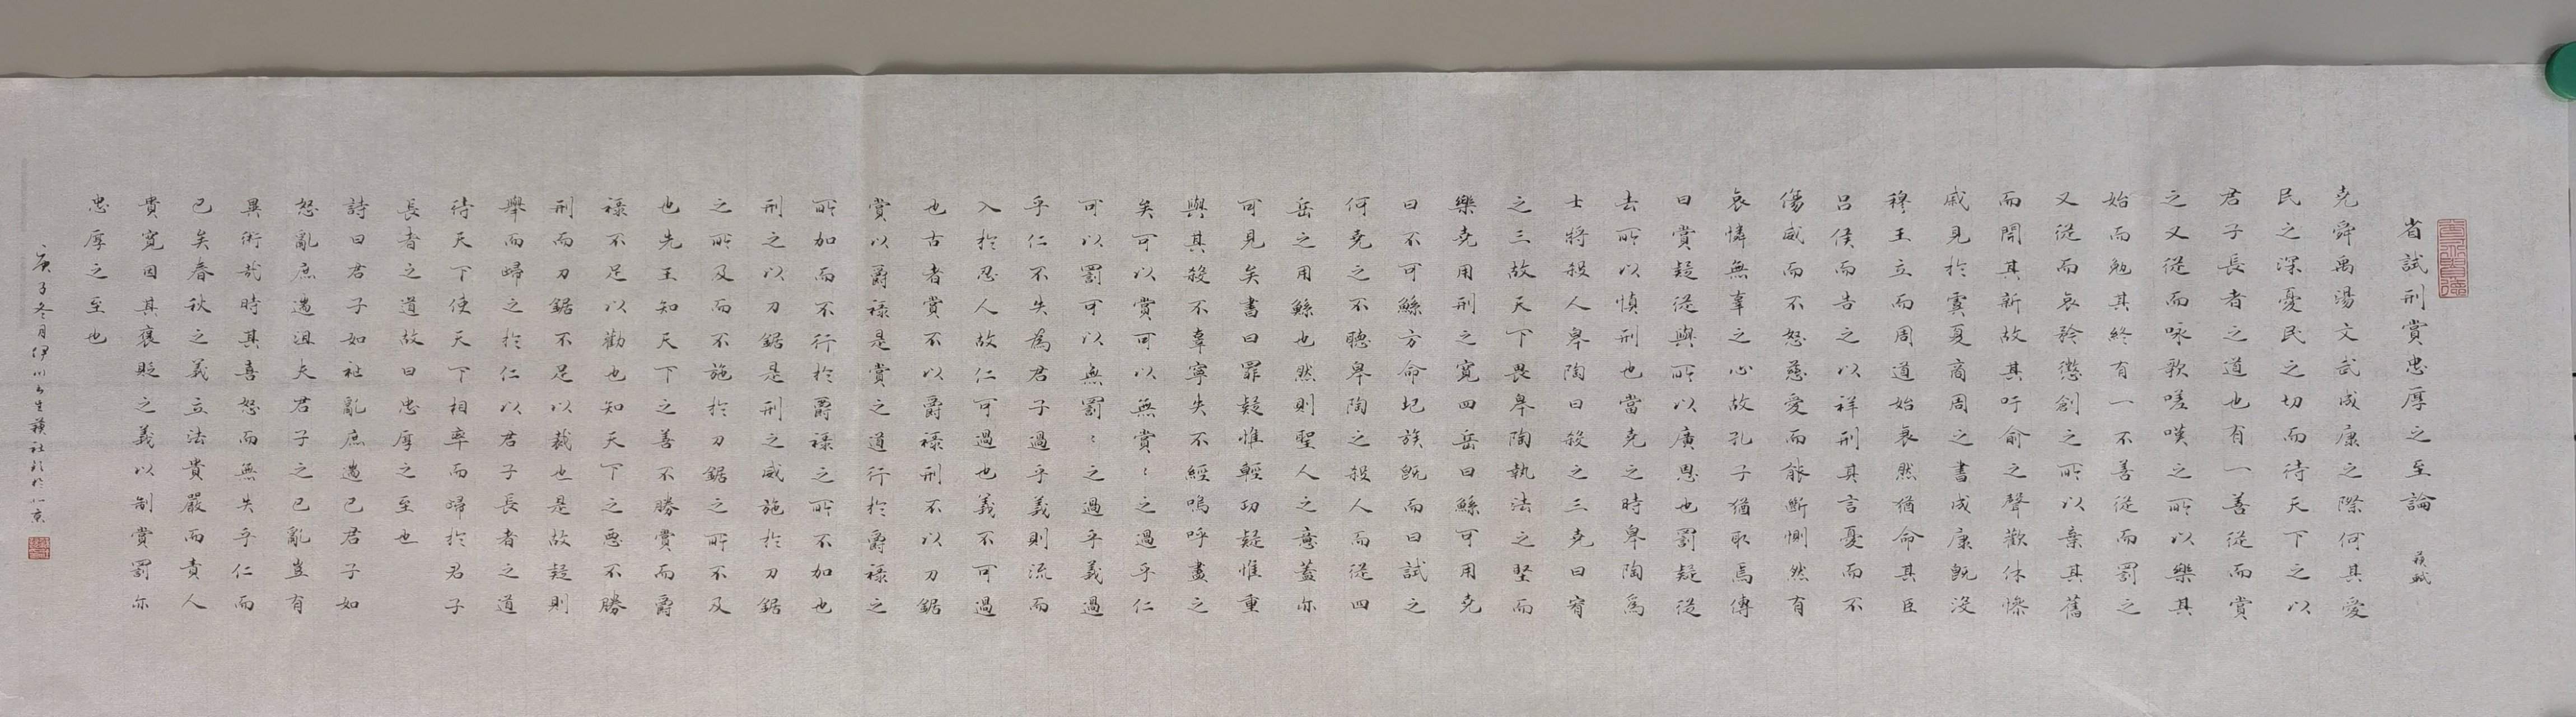 省試刑賞忠厚之至論 蘇軾
堯舜禹湯文武成康之際何其愛
民之深憂民之切而待天下之以
君子長者之道也有一善從而賞
之又從而咏歌嗟嘆之所以樂其
始而勉其終有一不善從而罰之
又從而哀矜懲創之所以棄其舊
而開其新故其吁俞之聲歡休慘
戚見於虞夏商周之書成康既沒
穆王立而周道始衰然猶命其臣
呂侯而告之以祥刑其言憂而不
傷威而不怒慈愛而能斷惻然有
哀憐無辜之心故孔子猶取焉傳
曰賞疑從與所以廣恩也罰疑從
去所以慎刑也當堯之時皋陶為
士將殺人皋陶曰殺之三堯曰宥
之三故天下畏皋陶執法之堅而
樂堯用刑之寬四岳曰鯀可用堯
曰不可鯀方命圮族既而曰試之
何堯之不聽皋陶之殺人而從四
岳之用鯀也然則聖人之意蓋亦
可見矣書曰罪疑惟輕功疑惟重
與其殺不辜寧失不經嗚呼盡之
矣可以賞可以無賞〻之過乎仁
可以罰可以無罰〻之過乎義過
乎仁不失為君子過乎義則流而
入於忍人故仁可過也義不可過
也古者賞不以爵祿刑不以刀鋸
賞以爵祿是賞之道行於爵祿之
所加而不行於爵祿之所不加也
刑之以刀鋸是刑之威施於刀鋸
之所及而不施於刀鋸之所不及
也先王知天下之善不勝賞而爵
祿不足以勸也知天下之惡不勝
刑而刀鋸不足以裁也是故疑則
舉而歸之於仁以君子長者之道
待天下使天下相率而歸於君子
長者之道故曰忠厚之至也
詩曰君子如祉亂庶遄已君子如
怒亂庶遄沮夫君子之已亂豈有
異術哉時其喜怒而無失乎仁而
已矣春秋之義立法貴嚴而責人
貴寬因其褒貶之義以制賞罰亦
忠厚之至也
庚子冬月伊川書生